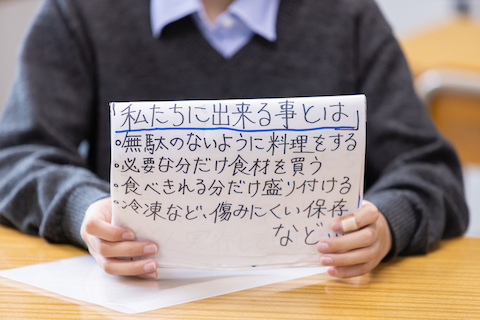 「私たちに出来る事とは」
・無駄のないように料理をする
・必要な分だけ食材を買う
・食べきれる分だけ盛り付ける
・冷凍など、傷みにくい保存
など…